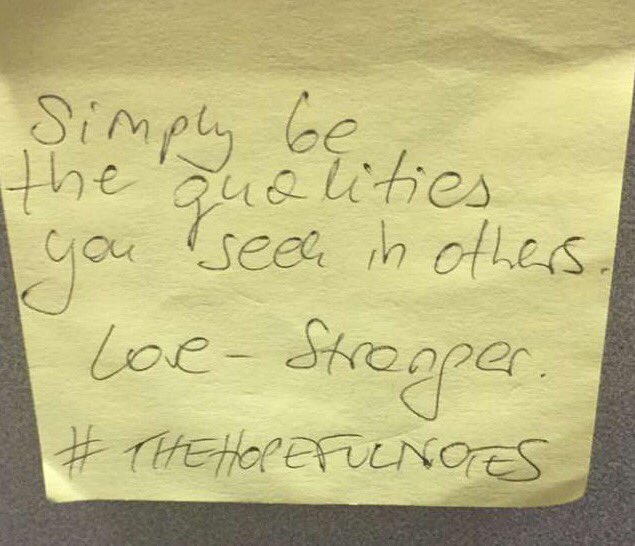 Simply be
the qualities
you seek in others.
Love - Stranger.
# THEHOPEFULNOTES